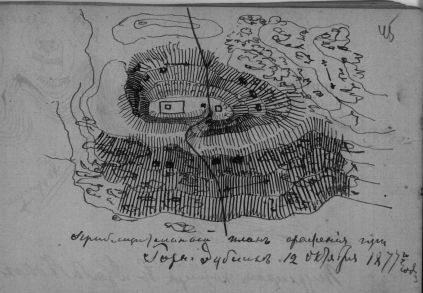 Приблизительный планъ сраженія при
Горн. Дубнякъ. 12 октября 1877 года